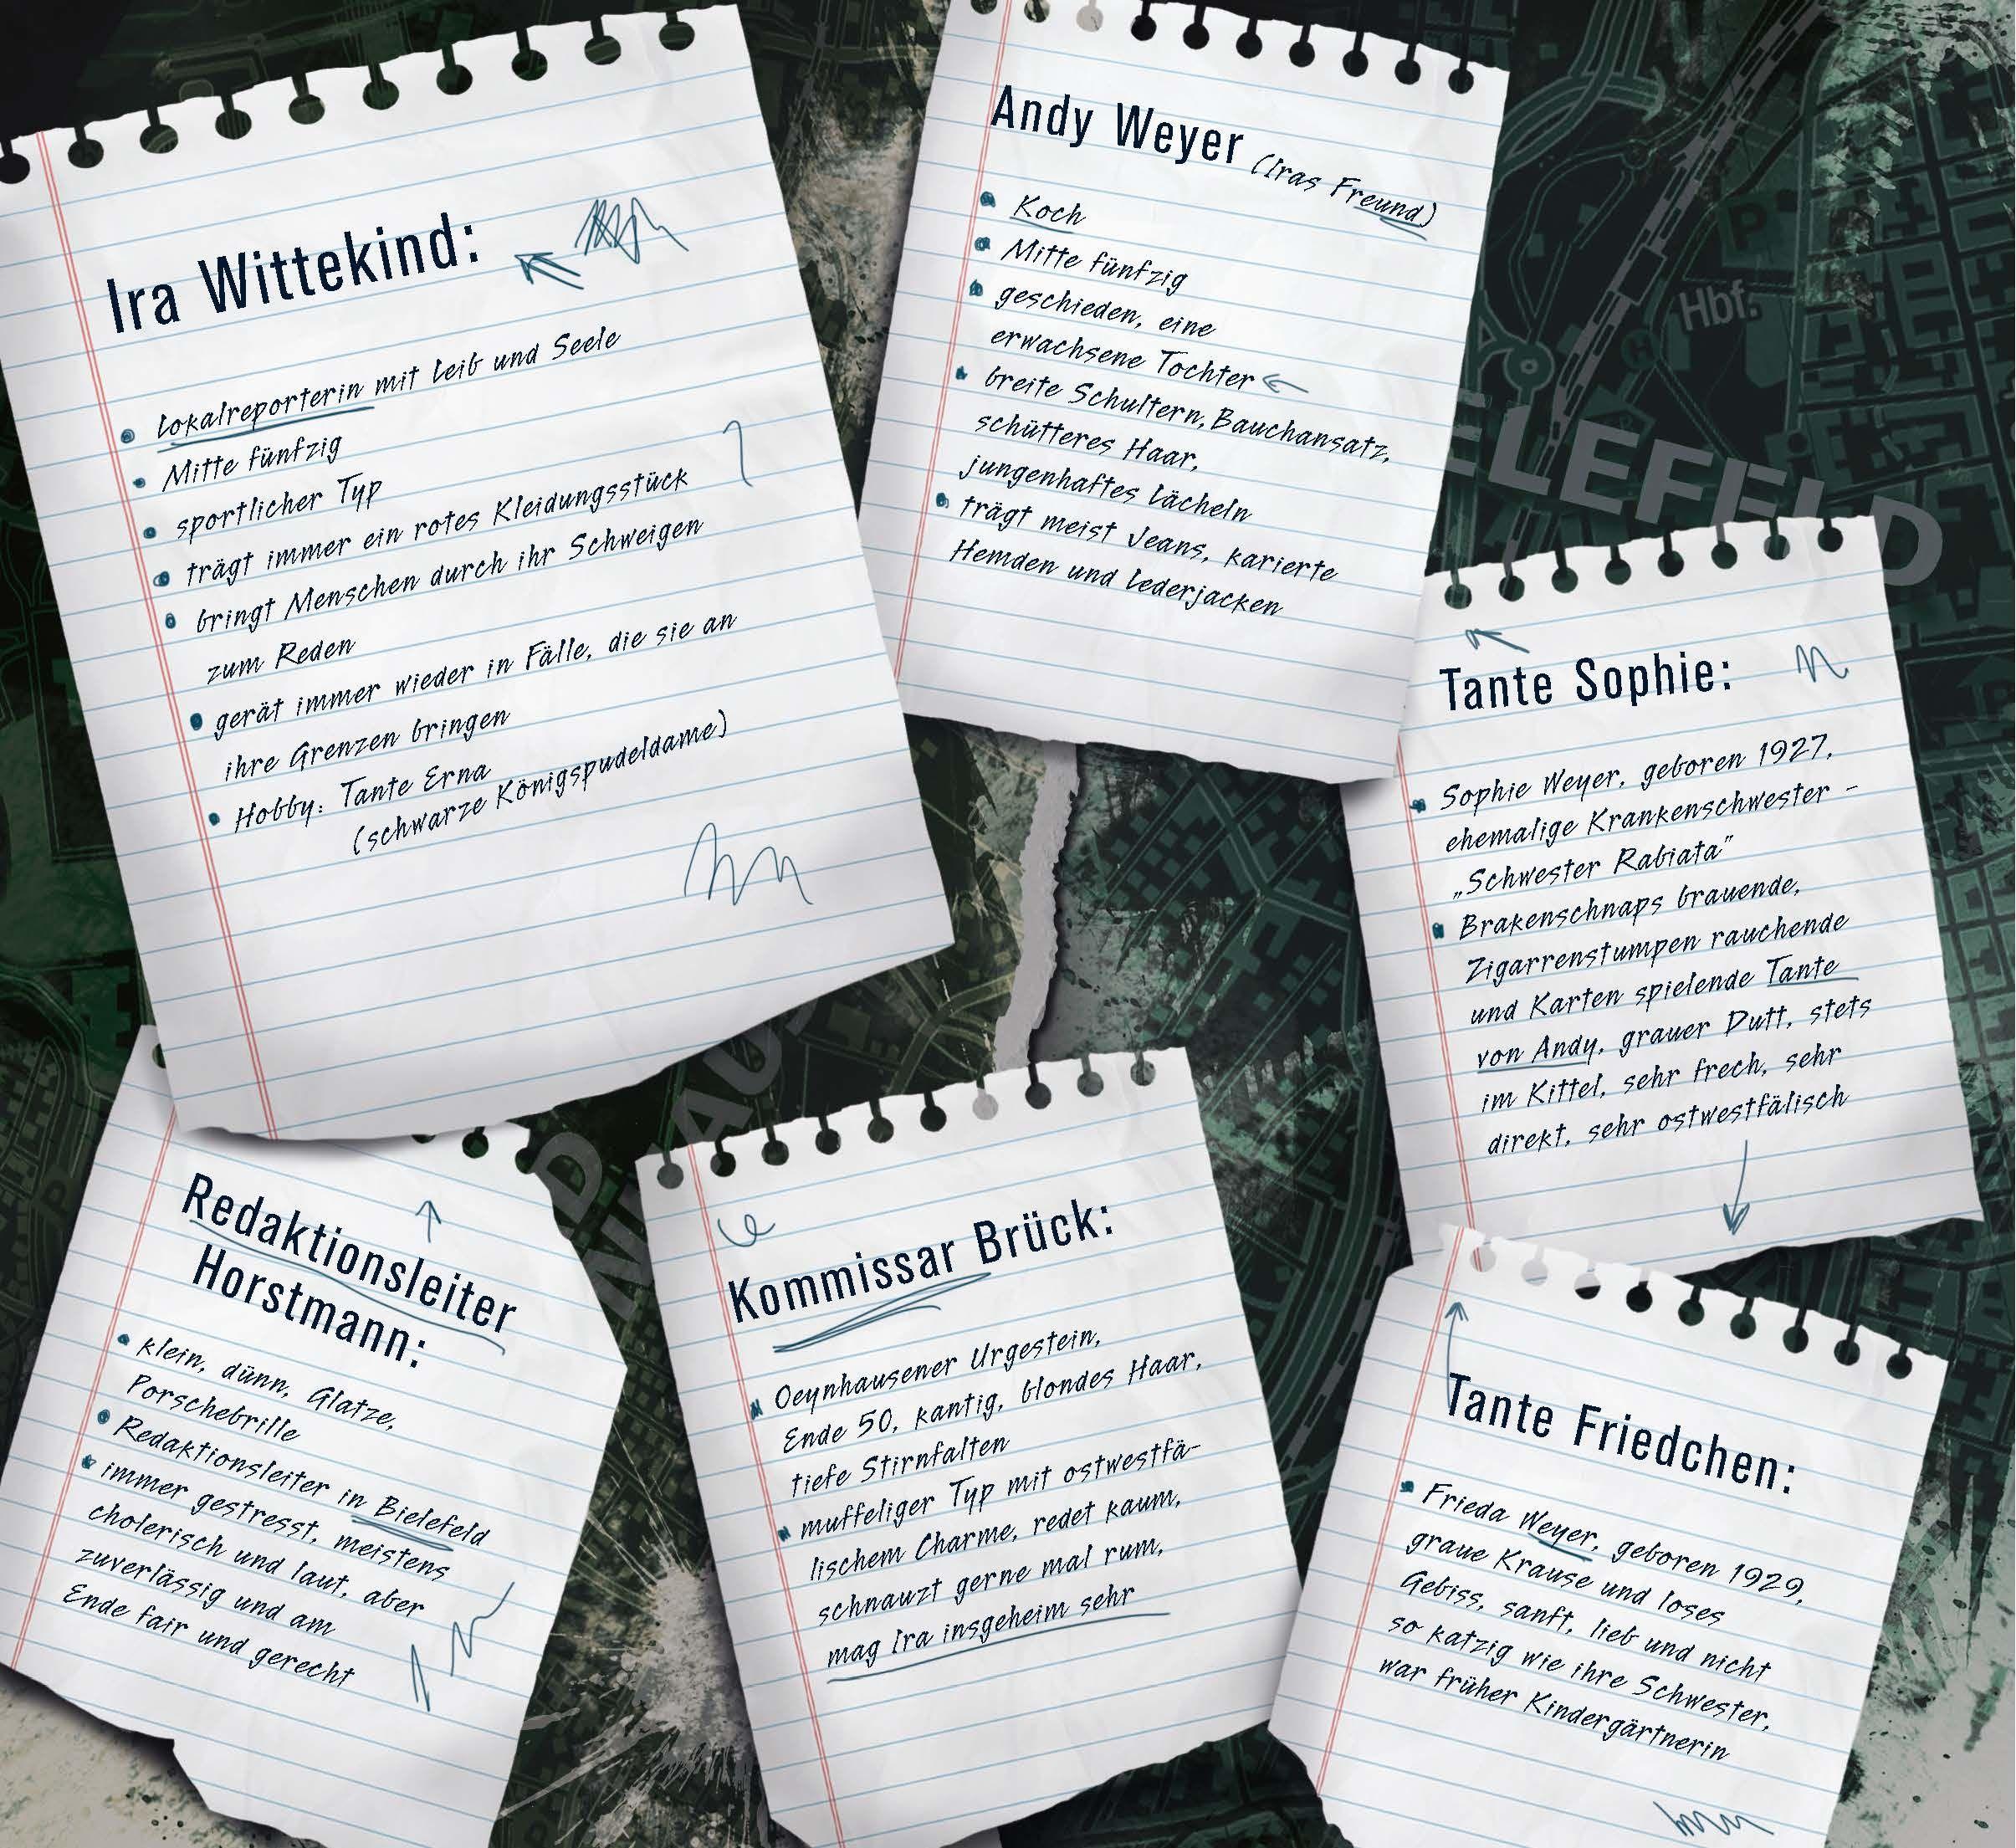 Ira Wittekind:
Lokalreporterin mit Leib und Seele
Mitte fünfzig
sportlicher Typ
trägt immer ein rotes Kleidungsstück
bringt Menschen durch ihr Schweigen
zum Reden
gerät immer wieder in Fälle, die sie an
ihre Grenzen bringen
Hobby: Tante Erna
(schwarze Königspudeldame)
Andy Weyer (Iras Freund)
Koch
Mitte fünfzig
geschieden, eine
erwachsene Tochter
breite Schultern, Bauchansatz,
schütteres Haar,
jungenhaftes Lächeln
trägt meist Jeans, karierte
Hemden und Lederjacken
Hbf.
ELEFELD
Tante Sophie:
Sophie Weyer, geboren 1927,
ehemalige Krankenschwester -
„Schwester Rabiata"
Brakenschnaps brauende,
Zigarrenstumpen rauchende
und Karten spielende Tante
von Andy, grauer Dutt, stets
im Kittel, sehr frech, sehr
direkt, sehr ostwestfälisch
Redaktionsleiter
Horstmann:
klein, dünn, Glatze,
Porschebrille
Redaktionsleiter in Bielefeld
immer gestresst, meistens
cholerisch und laut, aber
zuverlässig und am
Ende fair und gerecht
Kommissar Brück:
Oeynhausener Urgestein,
Ende 50, kantig, blondes Haar,
tiefe Stirnfalten
muffeliger Typ mit ostwestfä-
lischem Charme, redet kaum,
schnauzt gerne mal rum,
mag Ira insgeheim sehr
Tante Friedchen:
Frieda Weyer, geboren 1929,
graue Krause und loses
Gebiss, sanft, lieb und nicht
so katzig wie ihre Schwester,
war früher Kindergärtnerin